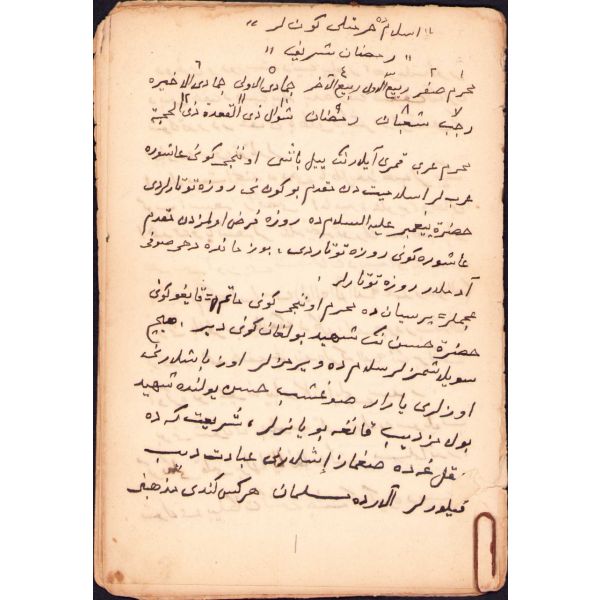 اسلام ده حرمتلی کون لر
" رمضان شریف "
محرم صفر ربیع الاول ربیع الآخر جمادی الاولی جمادی الاخیره
رجب شعبان رمضان شوال ذی القعدة ذی الحجة
محرم عربی قمری آیلارنک ییل باشی اوننجی کونی عاشوره
عرب لر اسلامیت دن مقدم بو کون نی روزه توتارلردی
حضرة پیغمبر علیه السلام ده روزه فرض اولمزدن مقدم
عاشوره کونی روزه توتاردی، بو زمانده دخی صوفی
آدملار روزه توتارلر.
عجملر = پرسیان ده محرم اوننجی کونی ماتم = قایغو کونی
حضرة حسین نک شهید بولغان کونی دیر. هیچ
سویلشمزلر سلام ده ویرمزلر اوز باشلرنی
اوزلری یارار صوغشب حسین یولنده شهید
بولمز دیب قانغه بویانرلر، شریعت که ده
عقل غه ده صغماز إشلرنی عبادت دیب
قیلورلر آلارده مسلمان هر کس کندی مذهبن